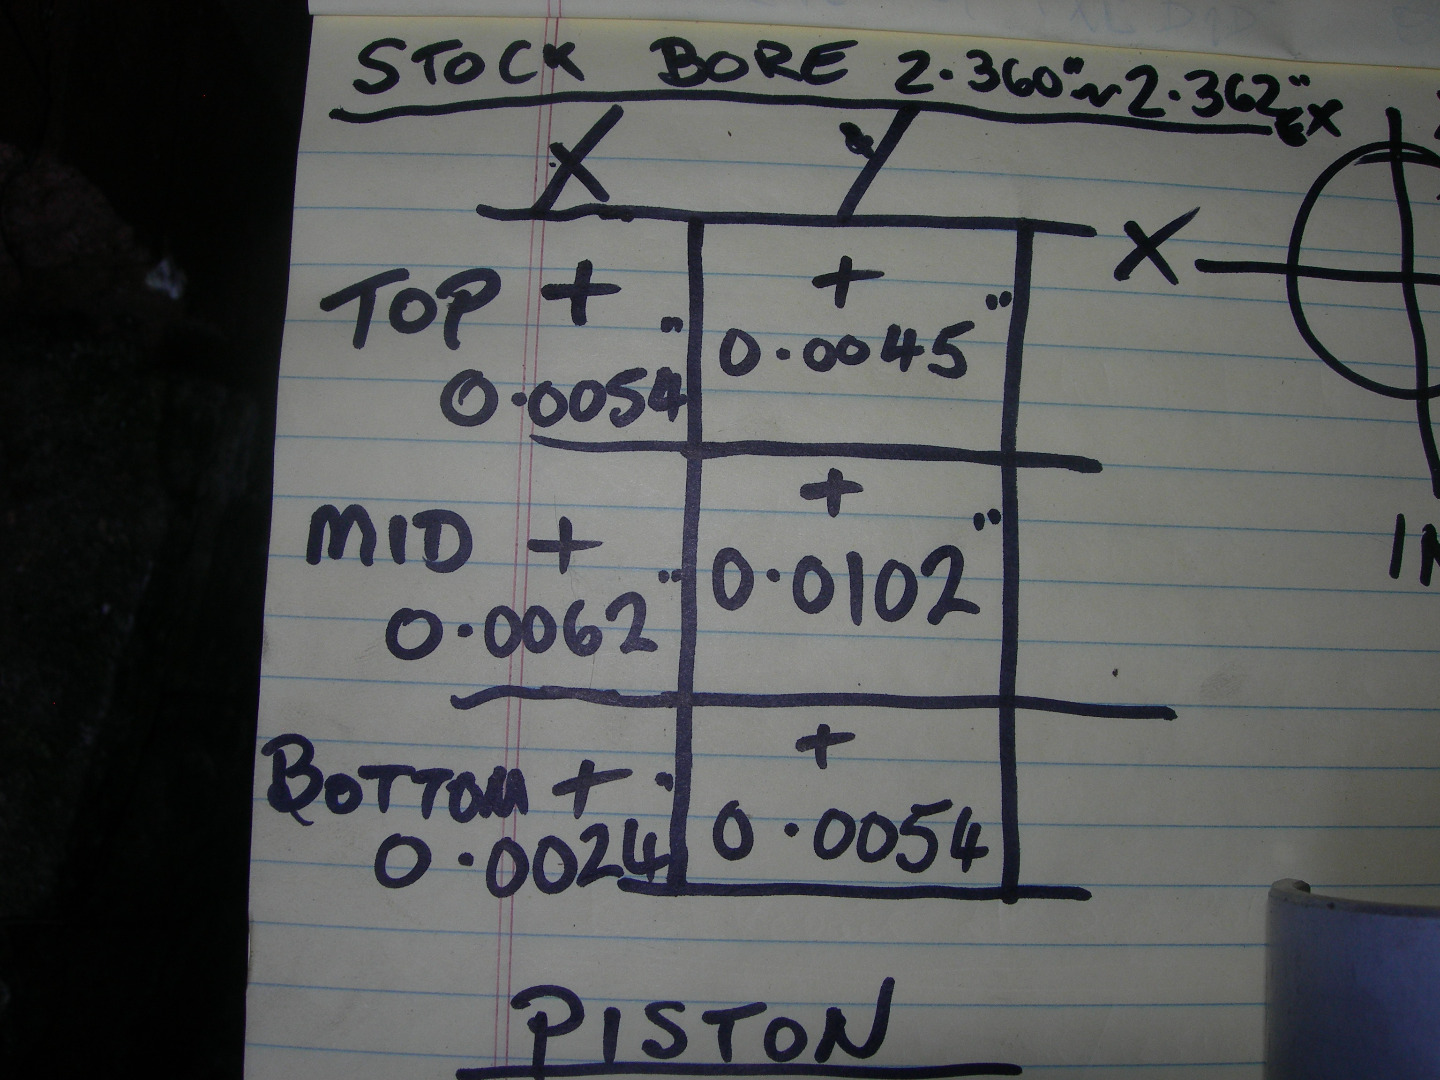 STOCK BORE 2.360"~2.362"
EX
X Y
TOP + 0.0054" + 0.0045"
X
MID + 0.0062" + 0.0102"
IN
BOTTOM + 0.0024" + 0.0054
PISTON